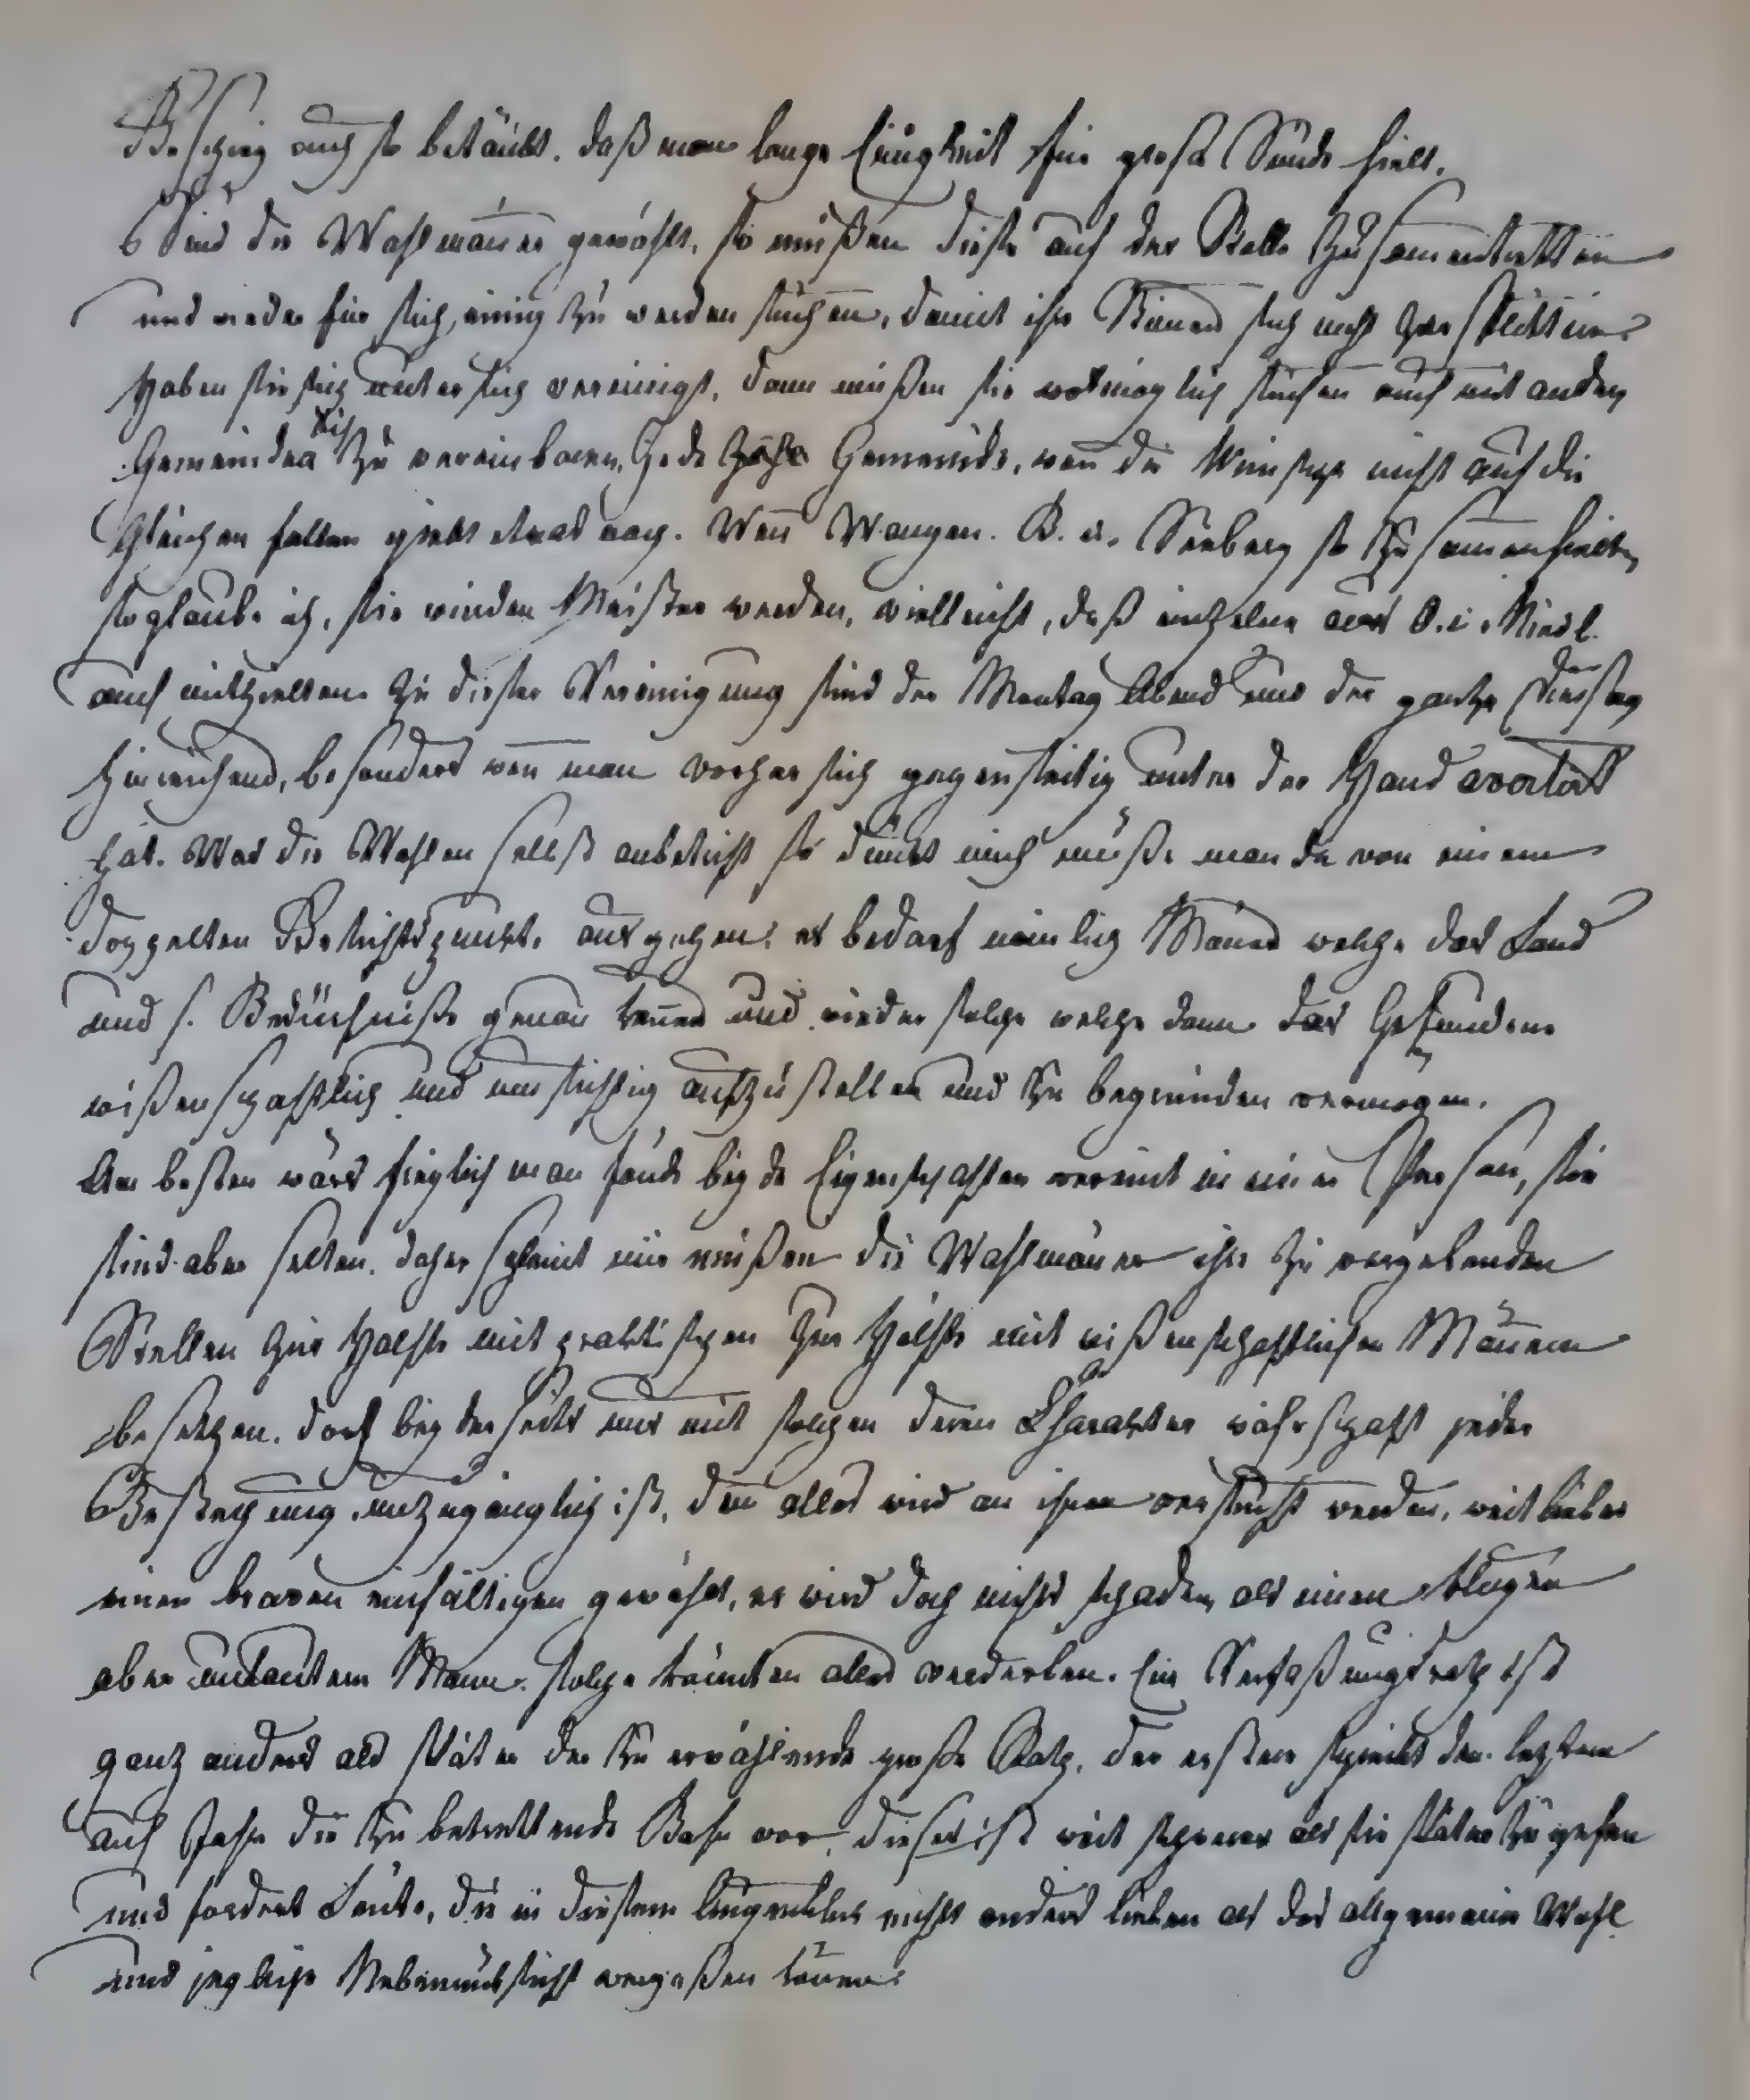 Beschrieg auch so betäubt. daß man lange Einigkeit für große Sünde hielt.
Sind die Wahlmäner gewählt, so müßen diese auf der Stelle zusamentretten
und wieder für sich einig zu werden suchen, damit ihre Stimen sich nicht zersplittern.
Haben sie sich unter sich vereinigt, dann müßen sie womöglich suchen auch mit andern
Gemeinden sich zu vereinbaren. Jede Gemeinde, wen die Wünsche nicht auf die
Gleichen fallen giebt etwas nach. Wen Wangen. B. u. Seeberg so zusamenhielten,
so glaube ich, sie würden Meister werden, vielleicht, daß einzelne aus O. u. Niedb.
auch mithielten. Zu dieser Vereinigung sind der Montag Abend und der ganze Dienstag
hinreichend, besonders wen man vorher sich gegenseitig unter der Hand avertirt
hat. Was die Wahlen selbst anbetrifft so dünkt mich müße man da von einem
doppelten Gesichtspunkte ausgehen: es bedarf nämlich Mäner welche das Land
und s. Bedürfniße genau kenen und wieder solche welche dann das Gefundene
wißenschaftlich und umsichtig aufzustellen und zu begründen vermögen.
Am besten wärs freylich man fände beyde Eigenschaften vereint in einer Person, sie
sind aber selten. daher scheint mir müßen die Wahlmäner ihre zu vergebenden
Stellen zur Hälfte mit praktischen zur Hälfte mit wißenschaftlichen Mänern
besetzen. doch beyderseits nur mit solchen deren Charakter währschaft jeder
Bestechung unzugänglich ist, den alles wird an ihnen versucht werden, weit lieber
einen braven einfältigen gewählt, er wird doch nichts schaden, als einen klugen
aber unlautern Mann. solche könnten alles verderben. Ein Verfaßungsrath ist
ganz anders als später der zu erwählende große Rath. der erstere schreibt dem letztern
auf Jahre die zu betrettende Bahn vor, dieses ist weit schwerer als sie später zu gehen
und fordert Leute, die in diesem Augenblick nichts anders lieben als das allgemeine Wohl
und jegliche Nebenrücksicht vergeßen könen.